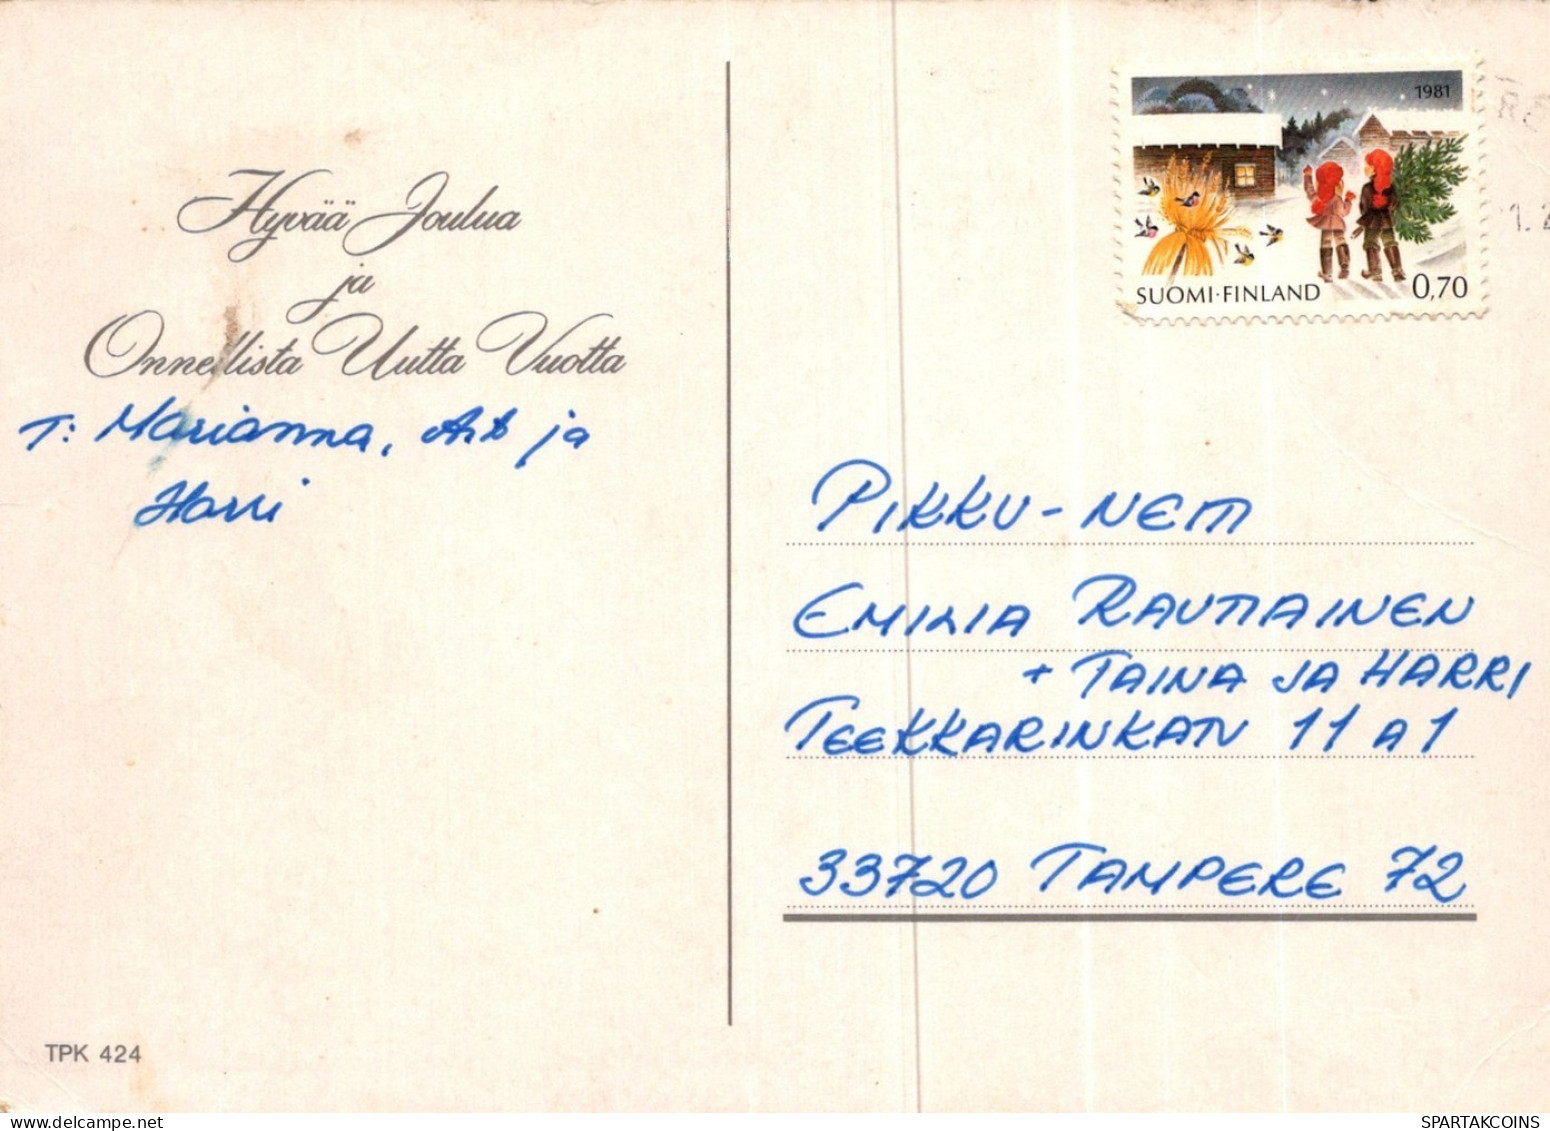 Hyvää Joulua
ja
Onnellista Uutta Vuotta
T: Marianna, ja
Harri
TPK 424
1981
SUOMI·FINLAND 0,70
PIKKU-NEITI
EMILIA RAUTIAINEN
+ TAINA JA HARRI
TEEKKARINKATU 11 A 1
33720 TAMPERE 72
SPARTAKCOINS